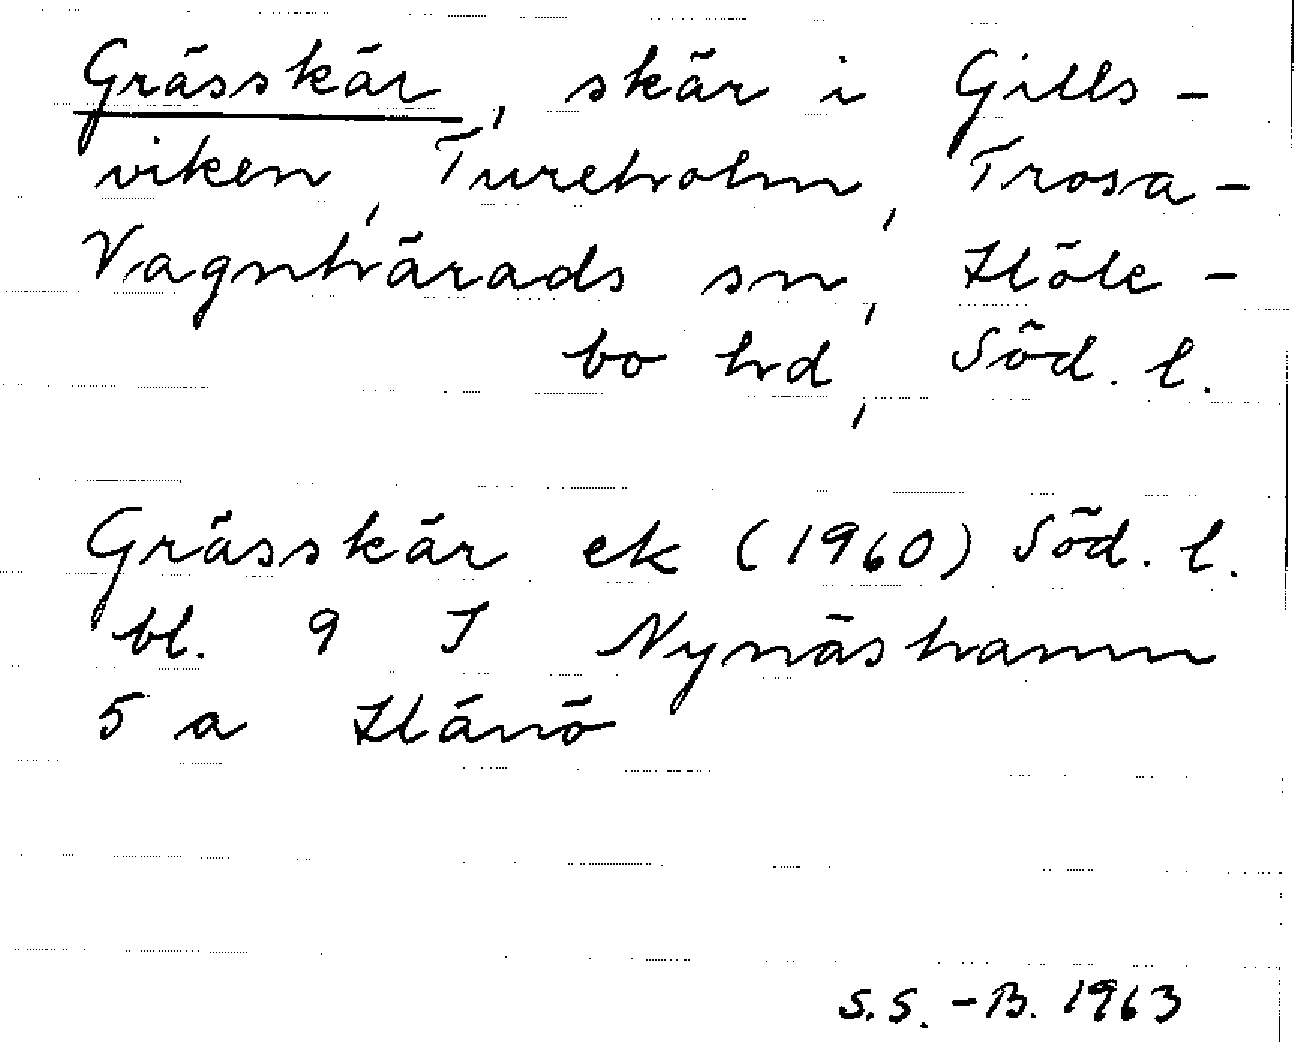 Grässkär, skär i Gills-
viken, Tureholm, Trosa-
Vagnhärads sn, Höle-
bo hd, Söd. l.
Grässkär ek (1960) Söd. l.
bl. 9 I Nynäshamn
5 a Hånö
S.S.-B. 1963